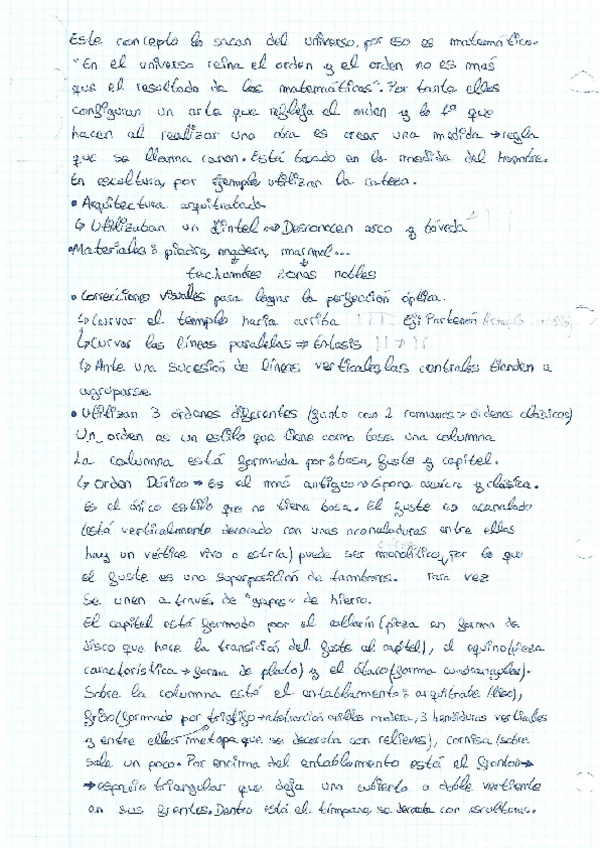 Este concepto lo sacan del universo, por eso es matemático.
"En el universo reina el orden y el orden no es más
que el resultado de las matemáticas". Por tanto ellos
configuran un arte que refleja el orden y lo 1º que
hacen al realizar una obra es crear una medida → regla
que se llama canon. Está basado en la medida del hombre.
En escultura, por ejemplo utilizan la cabeza.
• Arquitectura arquitrabada
↳ Utilizaban un dintel ⇒ Desconocen arco y bóveda
• Materiales: piedra, madera, marmol...
techumbres zonas nobles
• Correcciones visuales para lograr la perfección óptica.
↳ Curvar el templo hacia arriba Ej: Partenón
↳ Curvar las líneas paralelas ⇒ Éntasis
↳ Ante una sucesión de líneas verticales, las centrales tienden a
agruparse
• Utilizan 3 órdenes diferentes (junto con 2 romanos → órdenes clásicos)
Un orden es un estilo que tiene como base una columna
La columna está formada por: basa, fuste y capitel.
↳ Orden Dórico → Es el más antiguo → época arcaica y clásica.
Es el único estilo que no tiene basa. El fuste es acanalado
(está verticalmente decorado con unas acanaladuras entre ellas
hay un vértice vivo o estría) puede ser monolítico, por lo que
el fuste es una superposición de tambores. rara vez
Se unen a través de "grapas" de hierro.
El capitel está formado por el collarín (pieza en forma de
disco que hace la transición del fuste al capitel), el equino (pieza
característica → forma de plato) y el ábaco (forma cuadrangular).
Sobre la columna está el entablamento: arquitrabe (liso),
friso (formado por triglifo → madera, 3 hendiduras verticales
y entre ellos metopa que se decora con relieves), cornisa (sobre
sale un poco. Por encima del entablamento está el frontón →
→ espacio triangular que deja una cubierta a doble vertiente
en sus frentes. Dentro está el tímpano, se decora con esculturas.